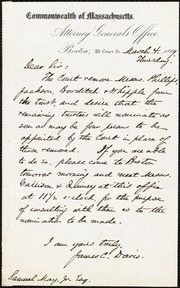 Commonwealth of Massachusetts.
Attorney General's Office,
Boston, 30 Court St. March 4, 18
Thursday.
Dear Sir:
The Court remove Messrs. Phillips,
Jackson, Bowditch & Whipple from
the trust, and desire that the
remaining trustees will nominate as
soon as may be four persons to be
appointed by the Court in place of
those removed. If you are able
to do so, please come to Boston
tomorrow morning and meet Messrs.
Garrison & Quincy at this office
at 11 1/2 o'clock for the purpose
of consulting with them as to the
nominations to be made.
I am yours truly,
James C. Davis.
Samuel May, Jr. Esq.